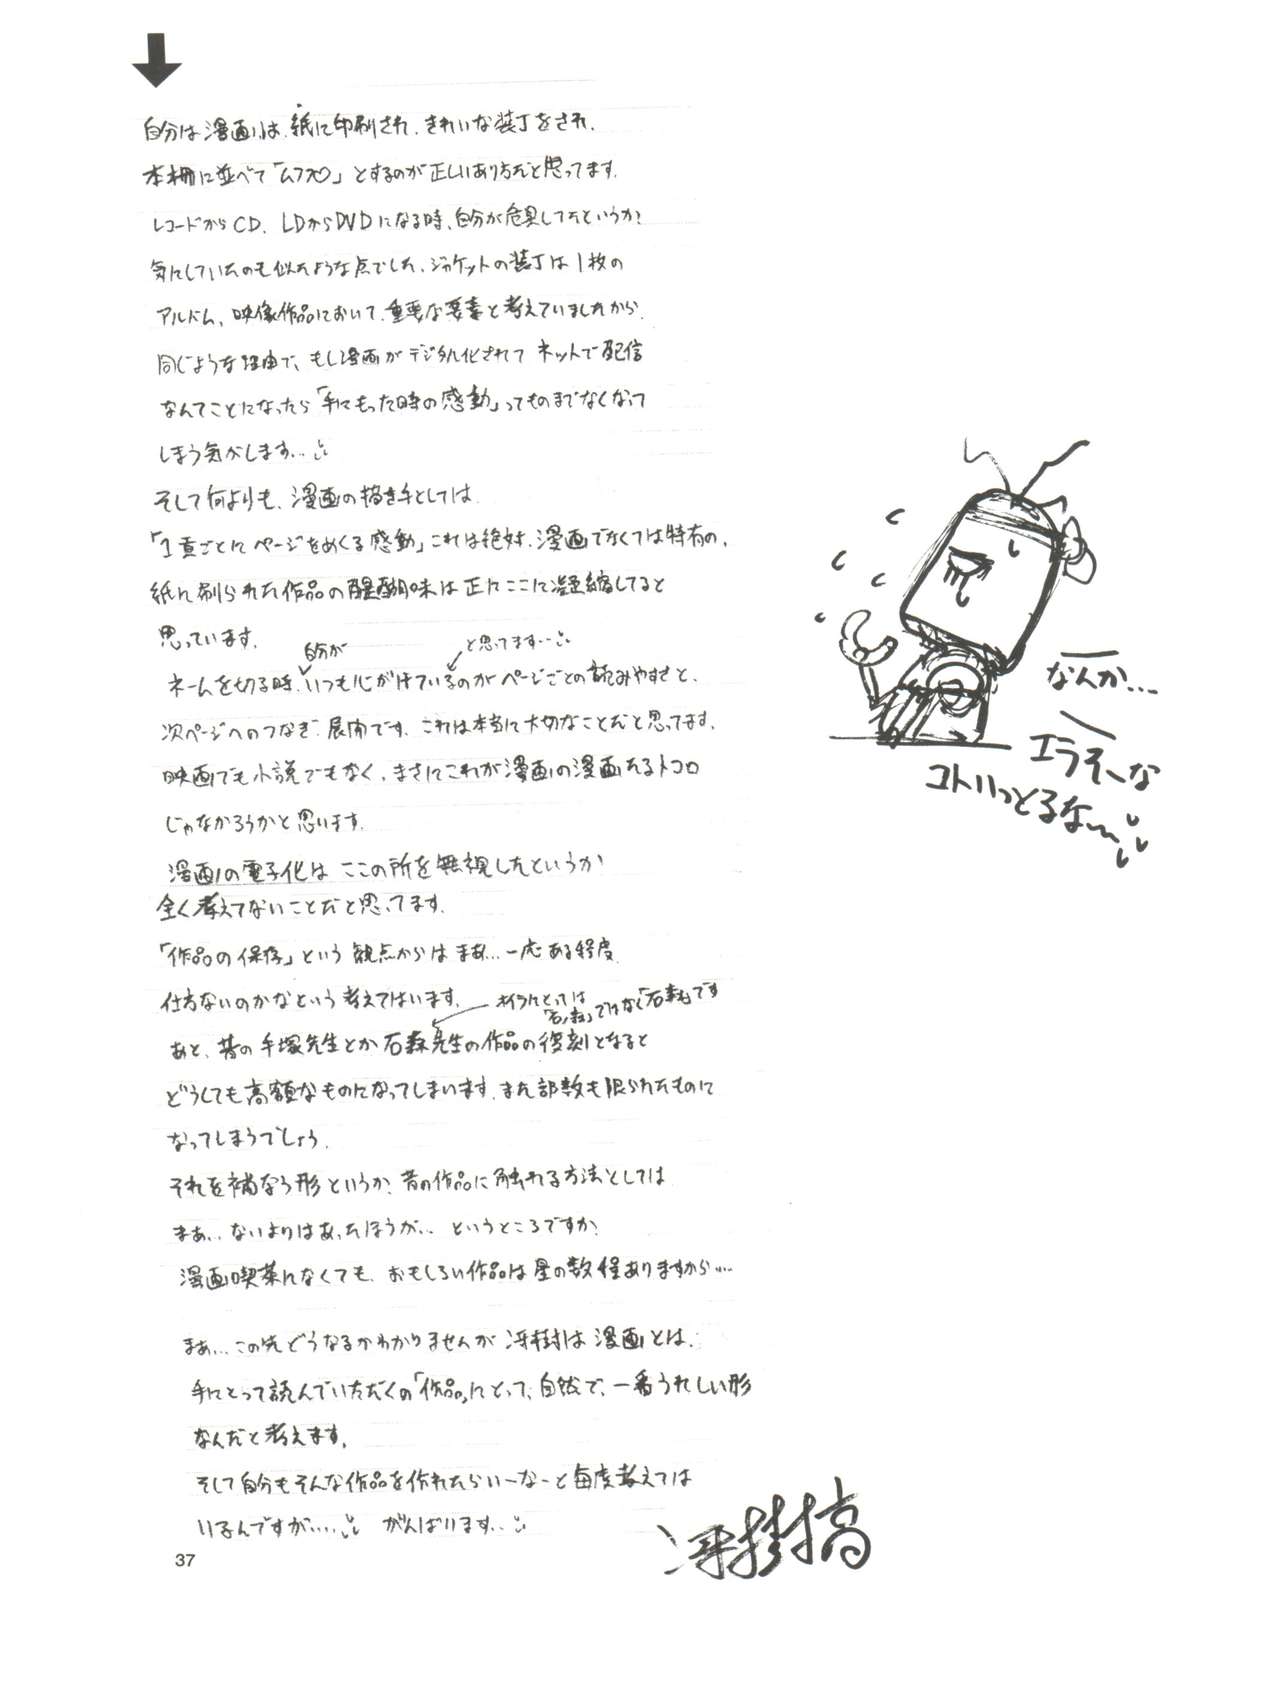 自分は漫画は、紙に印刷され、きれいな装丁をされ、
本棚に並べて「ムフ♡」とするのが正しいあり方だと思ってます。
レコードからCD、LDからDVDになる時、自分が危具してたというか、
気にしていたのも似たような点でした、ジャケットの装丁は1枚の
アルバム、映像作品において、重要な要素と考えていましたから、
同じような理由で、もし漫画がデジタル化されて ネットで配信
なんてことになったら「手にもった時の感動」ってものまでなくなって
しまう気がします…
そして何よりも、漫画の描き手としては
「1頁ごとにページをめくる感動」これは絶対、漫画でなくては特有の、
紙に刷られた作品の醍醐味は正にここに凝縮してると
思っています。
自分が
と思ってます…
ネームを切る時、いつも心がけているのがページごとの読みやすさと、
次ページへのつなぎ、展開です、これは本当に大切なことだと思ってます、
映画でも小説でもなく、まさにこれが漫画の漫画たるトコロ
じゃなかろうかと思います。
漫画の電子化は ここの所を無視したというか
全く考えてないことだと思ってます。
「作品の保存」という観点からは まあ…一応ある程度
仕方ないのかなという考えではいます。
オイラにとっては
「石ノ森」ではなく「石森」です
あと、昔の手塚先生とか石森先生の作品の復刻となると
どうしても高額なものになってしまいます、また部数も限られたものに
なってしまうでしょう、
それを補なう形というか、昔の作品に触れる方法としては
まあ…ないよりはあったほうが… というところですか、
漫画喫茶になくても、おもしろい作品は星の数程ありますから…
まあ…この先どうなるかわかりませんが 冴樹は漫画とは、
手にとって読んでいただくの「作品」にとって、自然で、一番うれしい形
なんだと考えます。
そして自分もそんな作品を作れたらいーなーと毎度考えては
いるんですが…… がんばります…
なんか…
エラそーな
コトいっとるな〜
冴樹搞
37